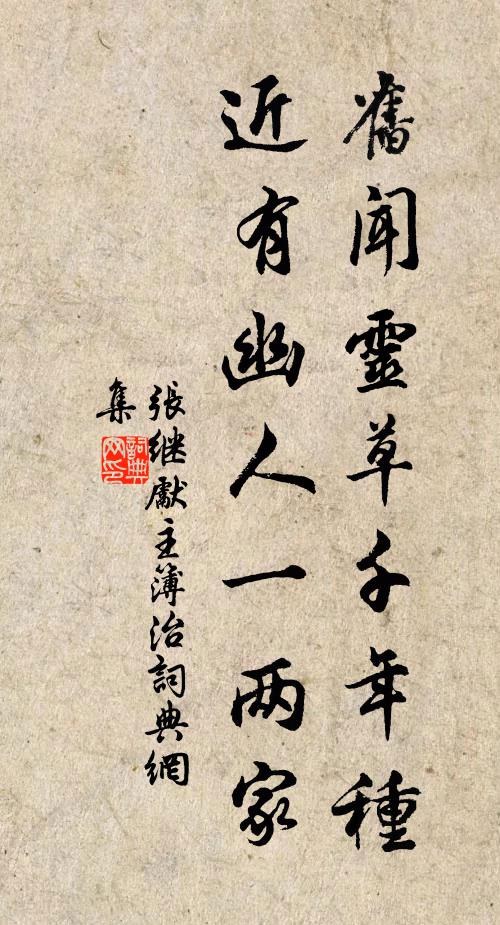 舊聞靈草千年種
近有幽人一两家
張继獻主簿治詞典網
集
詞典
网印